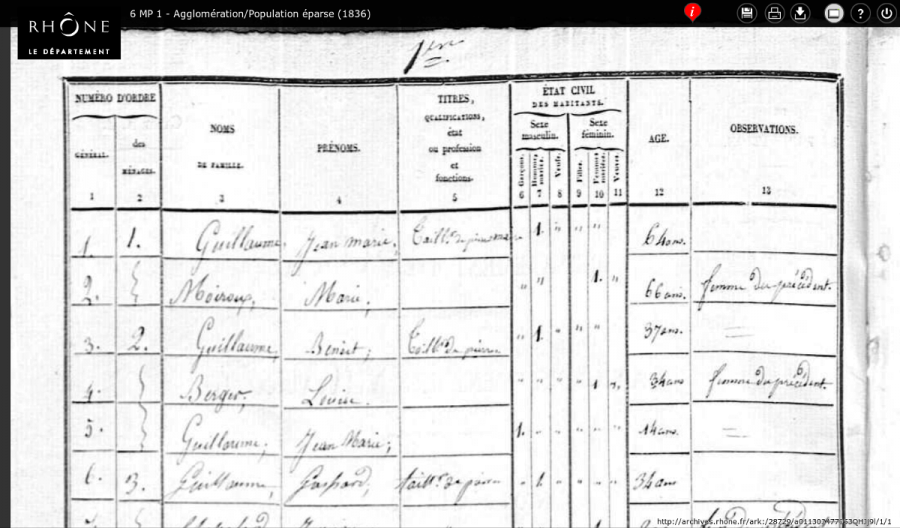 6 MP 1 - Agglomération/Population éparse (1836)
RHÔNE
LE DÉPARTEMENT
1er
NUMÉRO D'ORDRE
GÉNÉRAL.
des
MÉNAGES.
NOMS
DE FAMILLE.
PRÉNOMS.
TITRES,
QUALIFICATIONS,
état
ou profession
et
fonctions.
ÉTAT CIVIL
DES HABITANTS.
Sexe
masculin.
Sexe
féminin.
Garçons.
Hommes mariés.
Veufs.
Filles.
Femmes mariées.
Veuves.
AGE.
OBSERVATIONS.
1 2 3 4 5 6 7 8 9 10 11 12 13
1. 1. Guillaume, Jean Marie, Taillr. de pierre " 1. " " " 64 ans.
2. Marie, " " 1. " 66 ans. femme du précédent.
3. 2. Guillaume, Benoit, Taillr. de pierre " 1. " " " 37 ans. =
4. Berger, Louise. " " " " 1 " 34 ans femme du précédent.
5. Guillaume, Jean Marie, 1. " " " " " 14 ans. =
6. 3. Guillaume, Gaspard, taillr. de pierre " 1 " " " " 34 ans